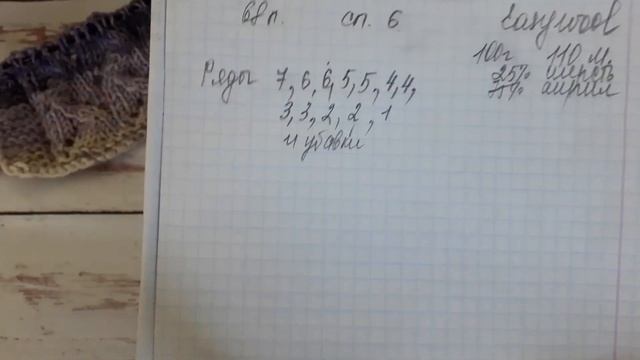 68 п. сп. 6 Easy wool
100г 110 м
25% шерсть
Ряды 7, 6, 6, 5, 5, 4, 4, 75% акрил
3, 3, 2, 2, 1
и убавки